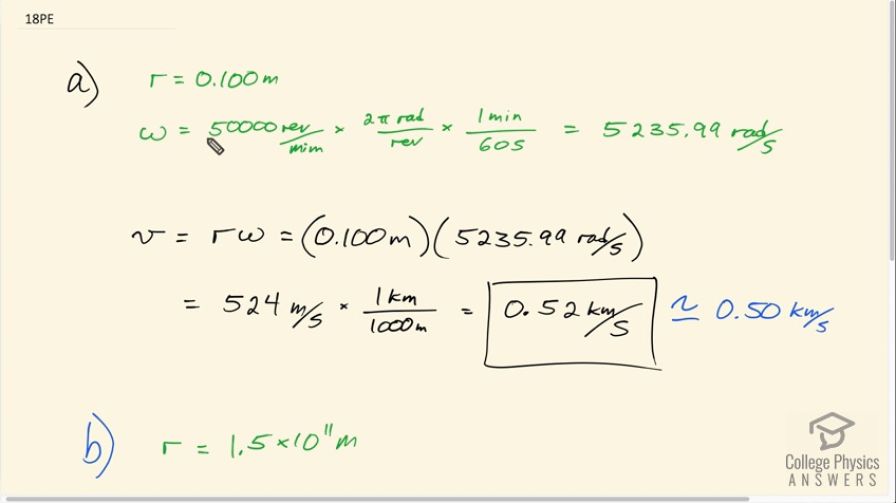 18PE
a) r = 0.100 m
ω = 50000 rev/min × 2π rad/rev × 1 min/60 s = 5235.99 rad/s
v = rω = (0.100 m)(5235.99 rad/s)
= 524 m/s × 1 km/1000 m = 0.52 km/s ≃ 0.50 km/s
b) r = 1.5 × 10¹¹ m
College Physics
ANSWERS